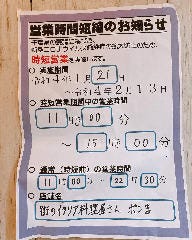 営業時間短縮のお知らせ
時短営業を実施します。
○ 実施期間
令和4年1月21日
～ 令和4年2月13日
○ 時短営業期間中の営業時間
11時00分
～ 15時00分
○ 通常(時短前)の営業時間
11時00分 ～ 22時30分
○ 店舗名
街のイタリア料理屋さん